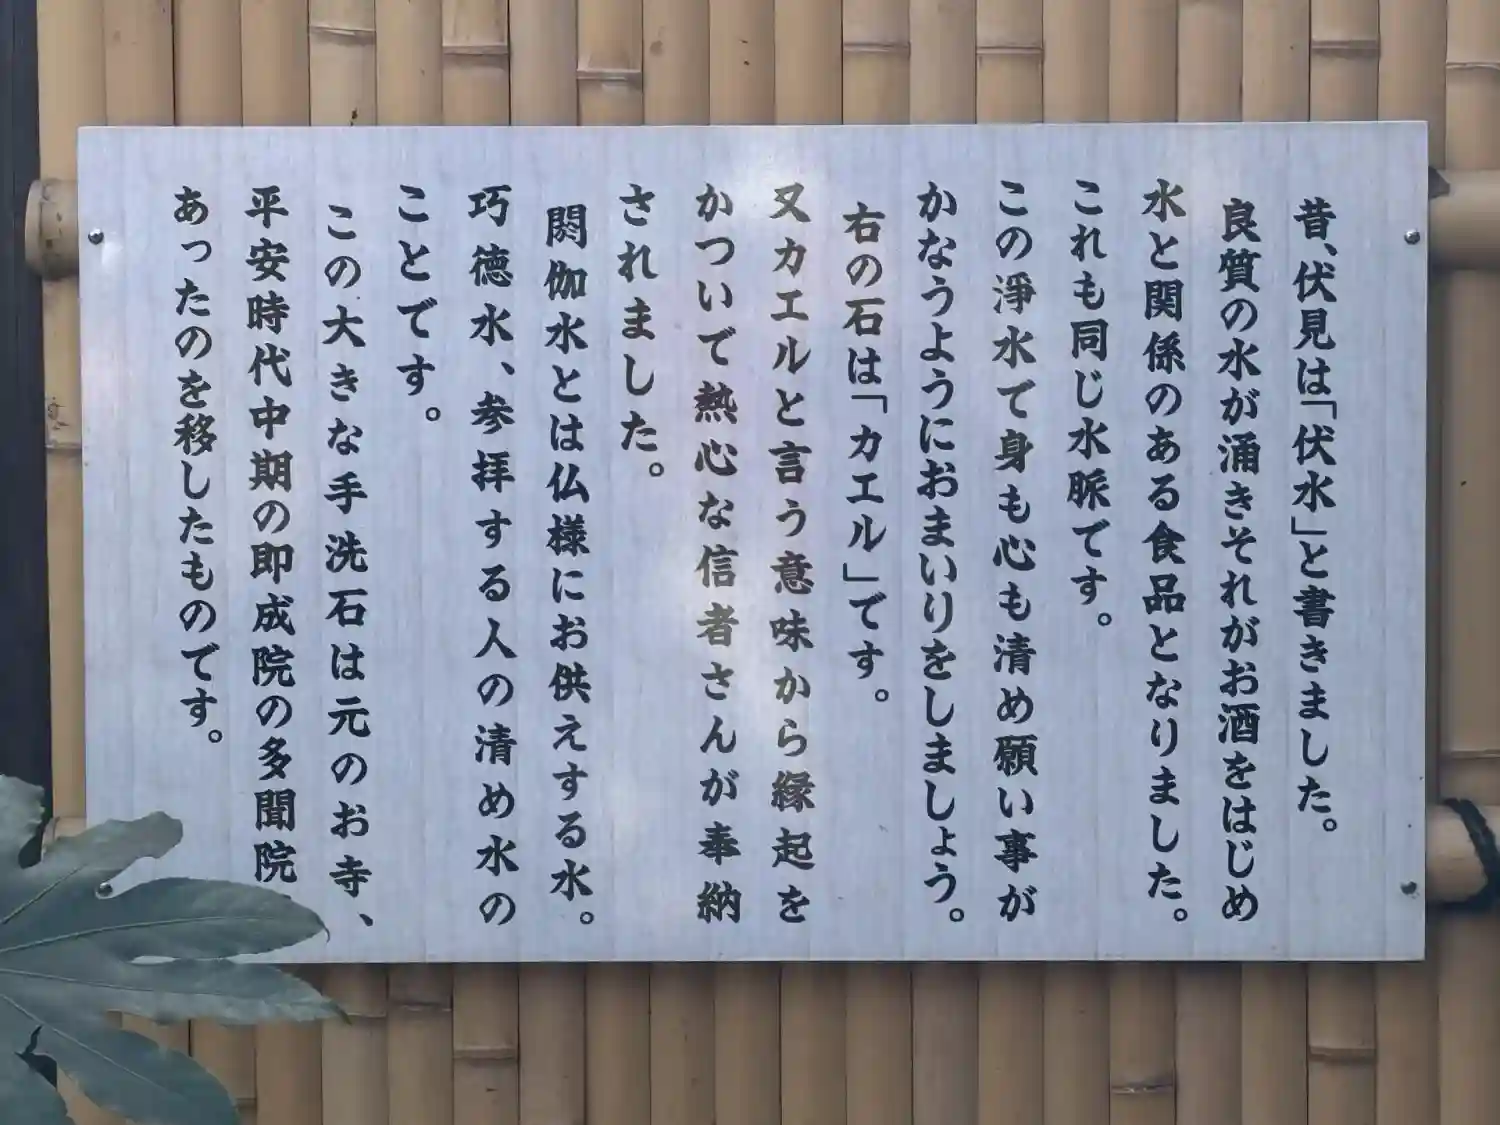 昔、伏見は「伏水」と書きました。
良質の水が涌きそれがお酒をはじめ
水と関係のある食品となりました。
これも同じ水脈です。
この淨水で身も心も清め願い事が
かなうようにおまいりをしましょう。
右の石は「カエル」です。
又カエルと言う意味から縁起を
かついで熱心な信者さんが奉納
されました。
閼伽水とは仏様にお供えする水。
巧徳水、参拝する人の清め水の
ことです。
この大きな手洗石は元のお寺、
平安時代中期の即成院の多聞院
あったのを移したものです。